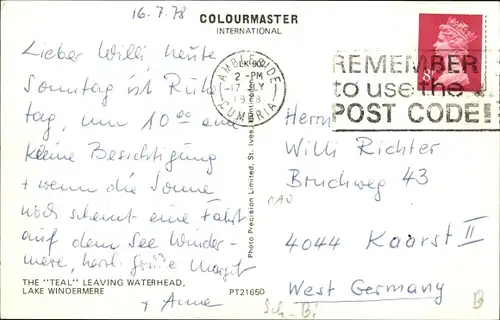 16.7.78
COLOURMASTER
INTERNATIONAL
Lieber Willi, heute
Sonntag ist Ruhe
tag, um 10 00 eine
kleine Besichtigung
+ wenn die Sonne
noch scheint eine Fahrt
auf dem See Winder-
mere, herzl. Grüße Margit
+ Anne
THE "TEAL" LEAVING WATERHEAD,
LAKE WINDERMERE
PT21650
Photo Precision Limited, St. Ives,
AMBLESIDE
2 -PM
17 JLY
1978
CUMBRIA
REMEMBER
to use the
POST CODE
Herrn
Willi Richter
Bruchweg 43
4044 Kaarst II
West Germany
Sch-Bi
B